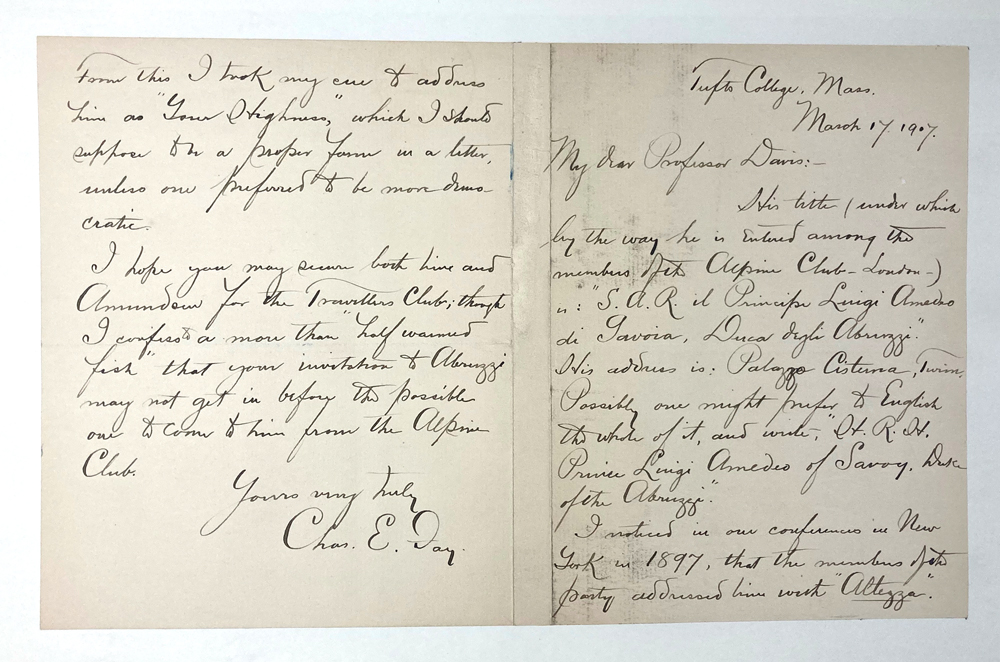 Tufts College, Mass.
March 17, 1907.
My dear Professor Davis:-
His title (under which
by the way he is entered among the
members of the Alpine Club - London -)
is: "S. A. R. il Principe Luigi Amedeo
di Savoia, Duca degli Abruzzi".
His address is: Palazzo Cisterna, Turin.
Possibly one might prefer to English
the whole of it, and write, "H. R. H.
Prince Luigi Amedeo of Savoy, Duke
of the Abruzzi".
I noticed in our conferences in New
York in 1897, that the members of the
party addressed him with "Altezza".
From this I took my cue to address
him as "Your Highness," which I should
suppose to be a proper form in a letter,
unless one preferred to be more demo-
cratic.
I hope you may secure both him and
Amundsen for the Travellers Club; though
I confess to a more than "half warmed
fish" that your invitation to Abruzzi
may not get in before the possible
one to come to him from the Alpine
Club.
Yours very truly
Chas. E. Fay.